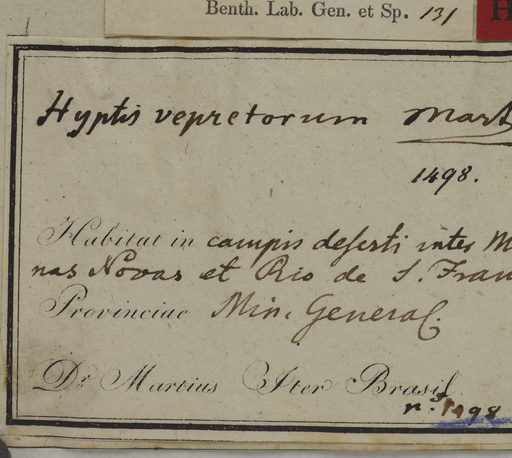 Benth. Lab. Gen. et Sp. 131
H
Hyptis vepretorum Mart
1498.
Habitat in campis deserti inter M
nas Novas et Rio de S. Fran
Provinciae Min. General.
Dr. Martius Iter Brasil
n. 1498